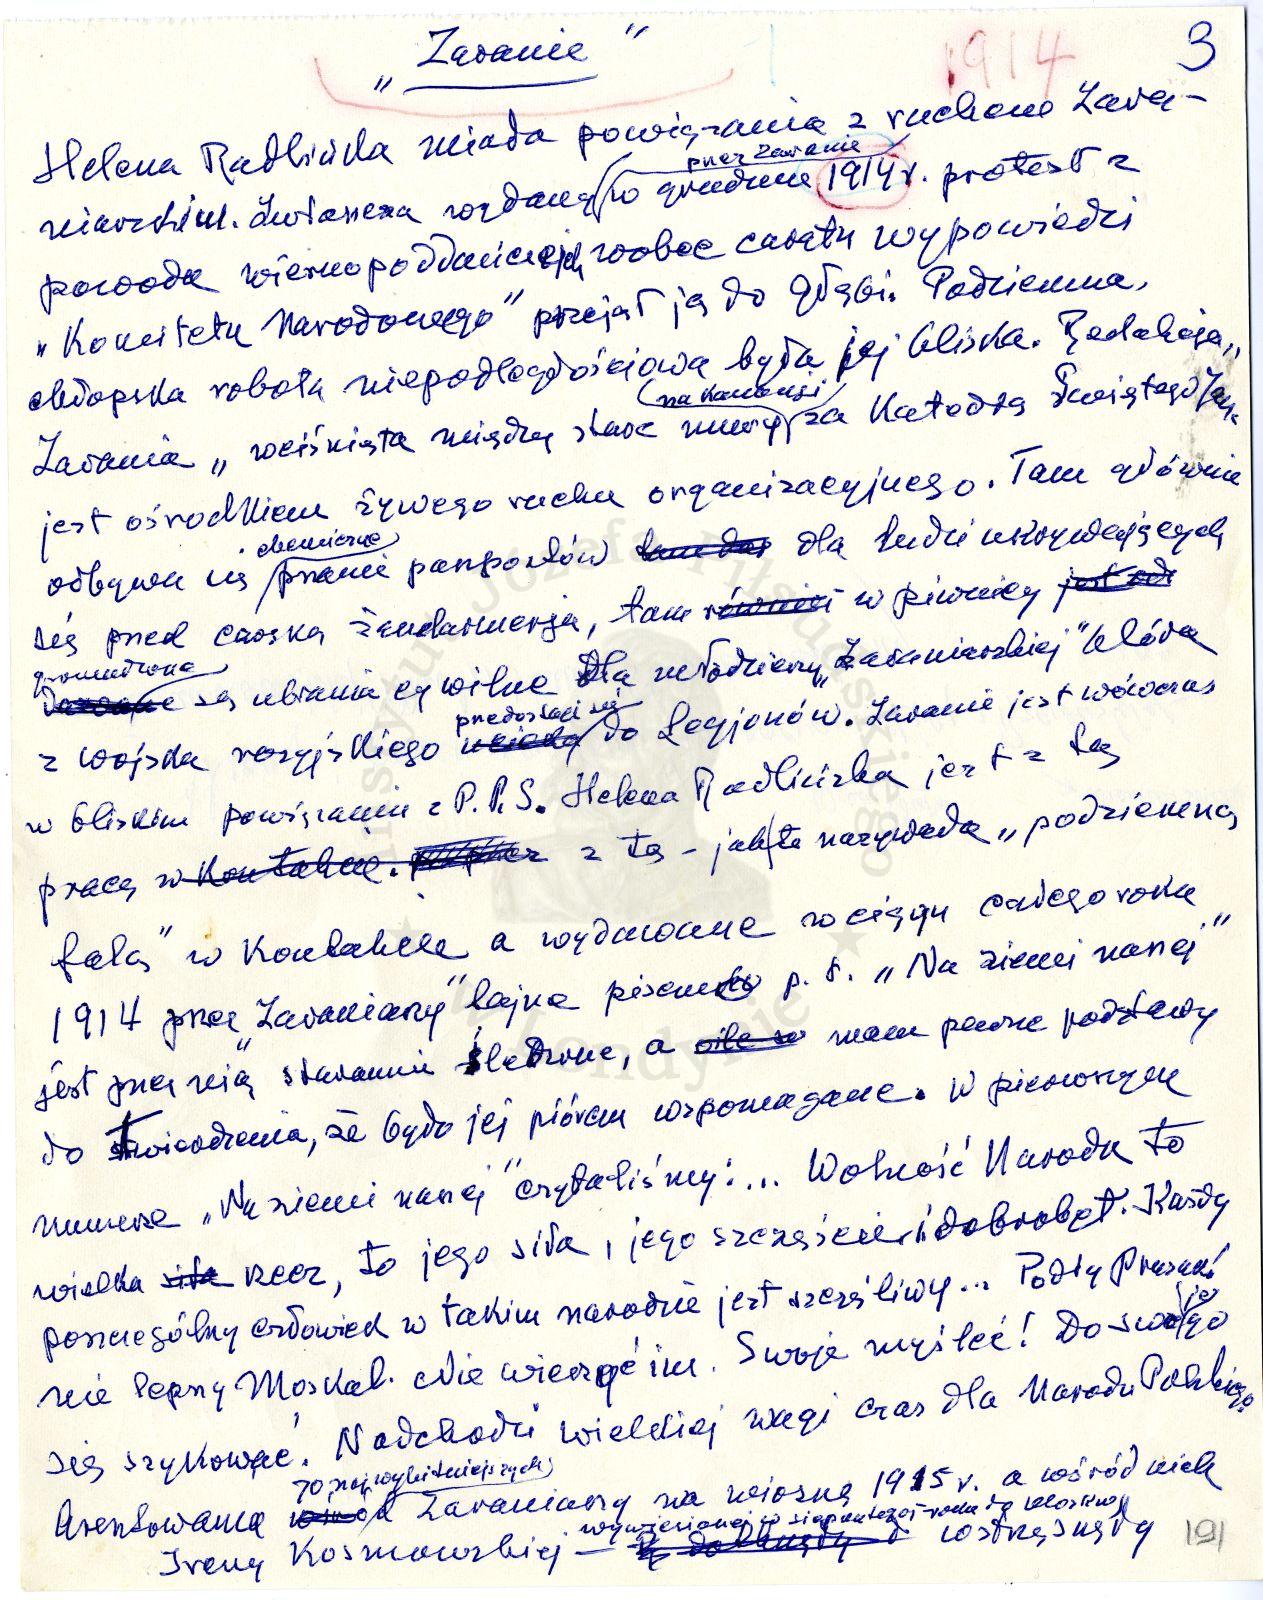 3
1914
„Zaranie"
Helena Radlińska miała powiązania z ruchem Zara-
niarskim. Zwłaszcza wydany przez Zaranie w grudniu 1914 r. protest z
powodu wiernopoddańczych wobec caratu wypowiedzi
„Komitetu Narodowego" przejął ją do głębi. Podziemna,
chłopska robota niepodległościowa była jej bliska. Redakcja „
Zarania „ wciśnięta między stare mury na Kanonji za Katedrą Świętego Jana
jest ośrodkiem żywego ruchu organizacyjnego. Tam głównie
odbywa się chemiczne pranie paszportów dla ludzi ukrywających
się przed carską żandarmerją, tam w piwnicy
gromadzone są ubrania cywilne dla młodzieży „Zaraniarskiej" która
z wojska rosyjskiego przedostaje się do Legjonów. Zaranie jest wówczas
w bliskim powiązaniu z P.P.S. Helena Radlińska jest z tą
pracą z tą – jak ta nazywała „podziemną
falą" w kontakcie a wydawane w ciągu całego roku
1914 przez „Zaraniarzy" tajne pismo p. t. „Na ziemi naszej"
jest przez nią starannie śledzone, a mam pewne podstawy
do twierdzenia, że było jej piórem wspomagane. W pierwszym
numerze „Na ziemi naszej" czytaliśmy: ... Wolność Narodu to
wielka rzecz, to jego siła, jego szczęście i dobrobyt. Każdy
poszczególny człowiek w takim narodzie jest szczęśliwy... Podły Prusak!
nie lepszy Moskal. Nie wierzyć im. Swoje myśleć! Do swojego
się szykować. Nadchodzi wielkiej wagi czas dla Narodu Polskiego.
Aresztowania 70 najwybitniejszych Zaraniarzy na wiosnę 1915 r. a wśród nich
Ireny Kosmowskiej – wywiezionej w sierpniu tegoż roku do Moskwy wstrząsnęły
191
Instytut Józefa Piłsudskiego
w Londynie